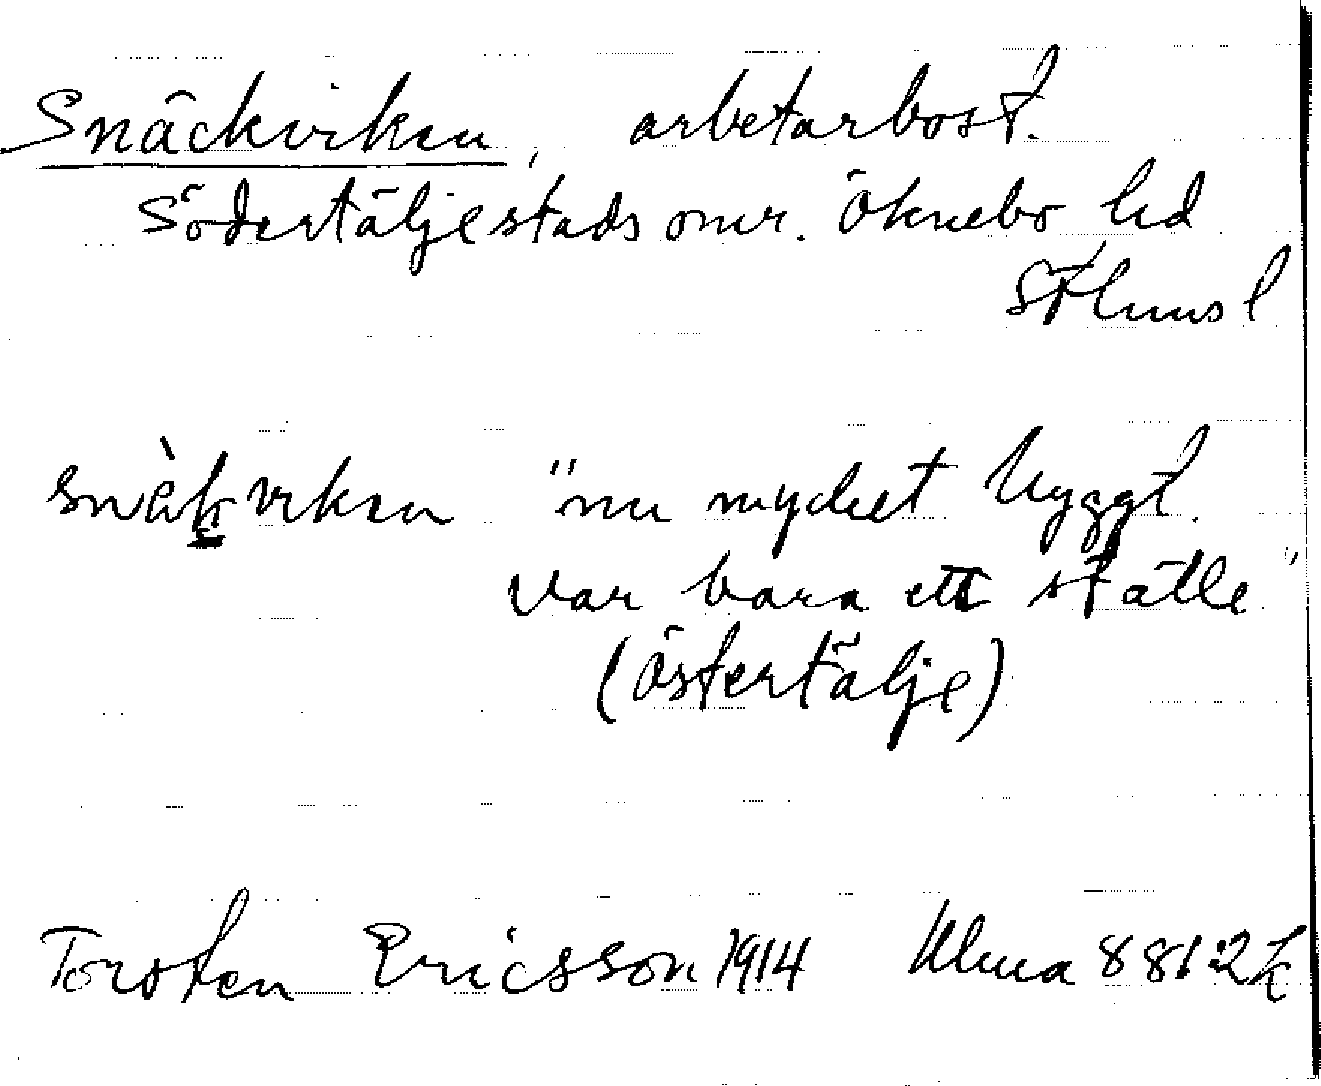 Snäckviken, arbetarbost.
Södertälje stads omr. Öknebo hd
Sthlms l
snèkviken "nu mycket byggt.
var bara ett ställe"
(Östertälje)
Torsten Ericsson 1914 Ulma 881:2k